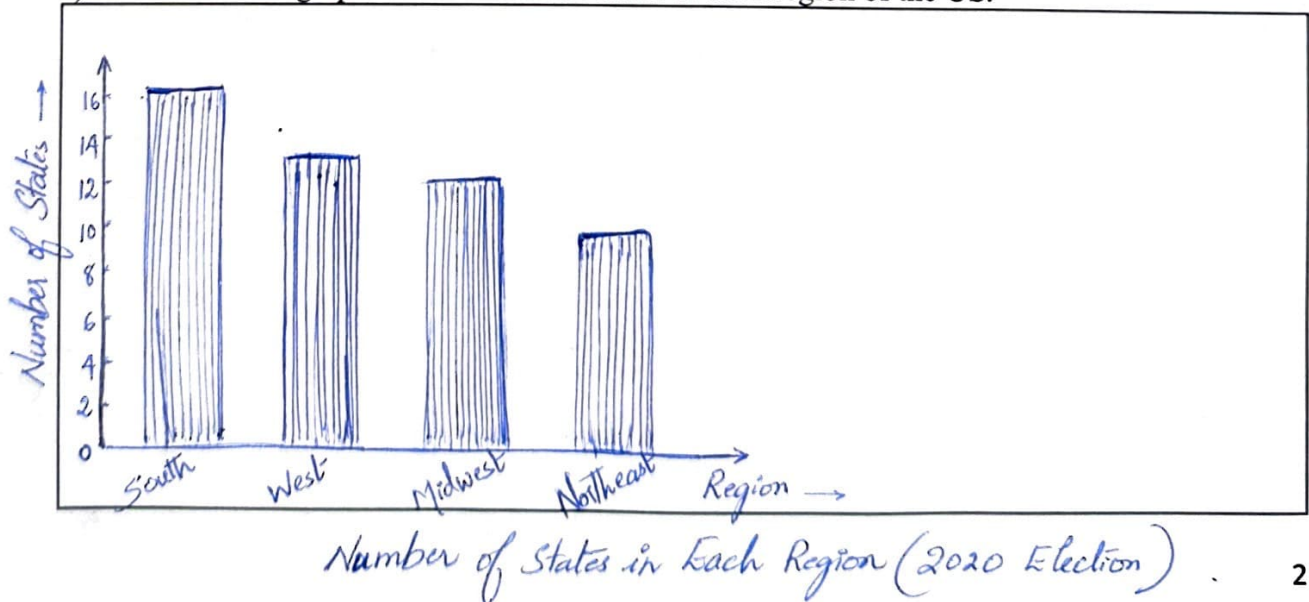 region of the US.
Number of States →
16
14
12
10
8
6
4
2
0
South West Midwest Northeast Region →
Number of States in Each Region (2020 Election).
2